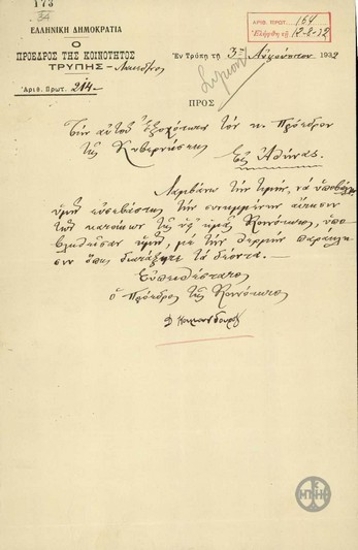 173
34
ΕΛΛΗΝΙΚΗ ΔΗΜΟΚΡΑΤΙΑ
Ο
ΠΡΟΕΔΡΟΣ ΤΗΣ ΚΟΙΝΟΤΗΤΟΣ
ΤΡΥΠΗΣ
Ἀριθ. Πρωτ. 214
Ἐν Τρύπῃ τῇ 3 Αὐγούστου 1932
ΑΡΙΘ. ΠΡΩΤ. 164
Ἐλήφθη τῇ 12-8-32
ΠΡΟΣ
Τὴν αὐτοῦ Ἐξοχότητα τὸν κ. Πρόεδρον
τῆς Κυβερνήσεως
Εἰς Ἀθήνας.
Λαμβάνω τὴν τιμὴν, νὰ ὑποβάλω
ὑμῖν εὐσεβάστως τὴν συνημμένην αἴτησιν
τῶν κατοίκων τῆς ὑφ' ἡμᾶς Κοινότητος, ὑπο
βληθεῖσαν ἡμῖν, μὲ τὴν θερμὴν παράκλη
σιν ὅπως διατάξητε τὰ δέοντα.
Εὐπειθέστατος
ὁ Πρόεδρος τῆς Κοινότητος